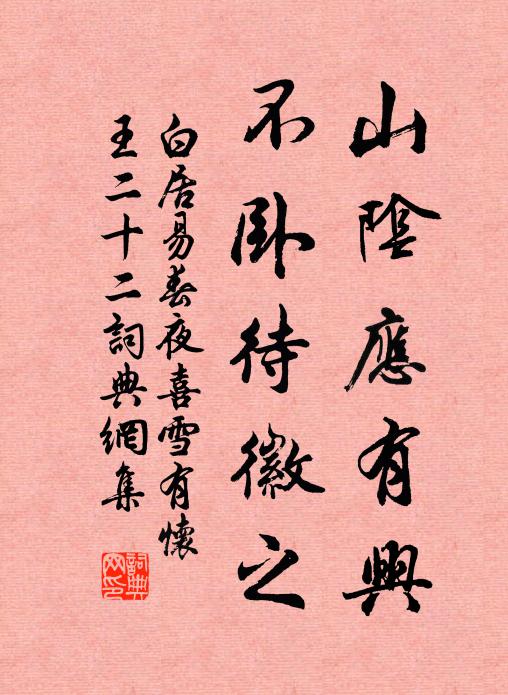 山陰應有興
不卧待徽之
白居易春夜喜雪有懷
王二十二詞典網集
詞典網印